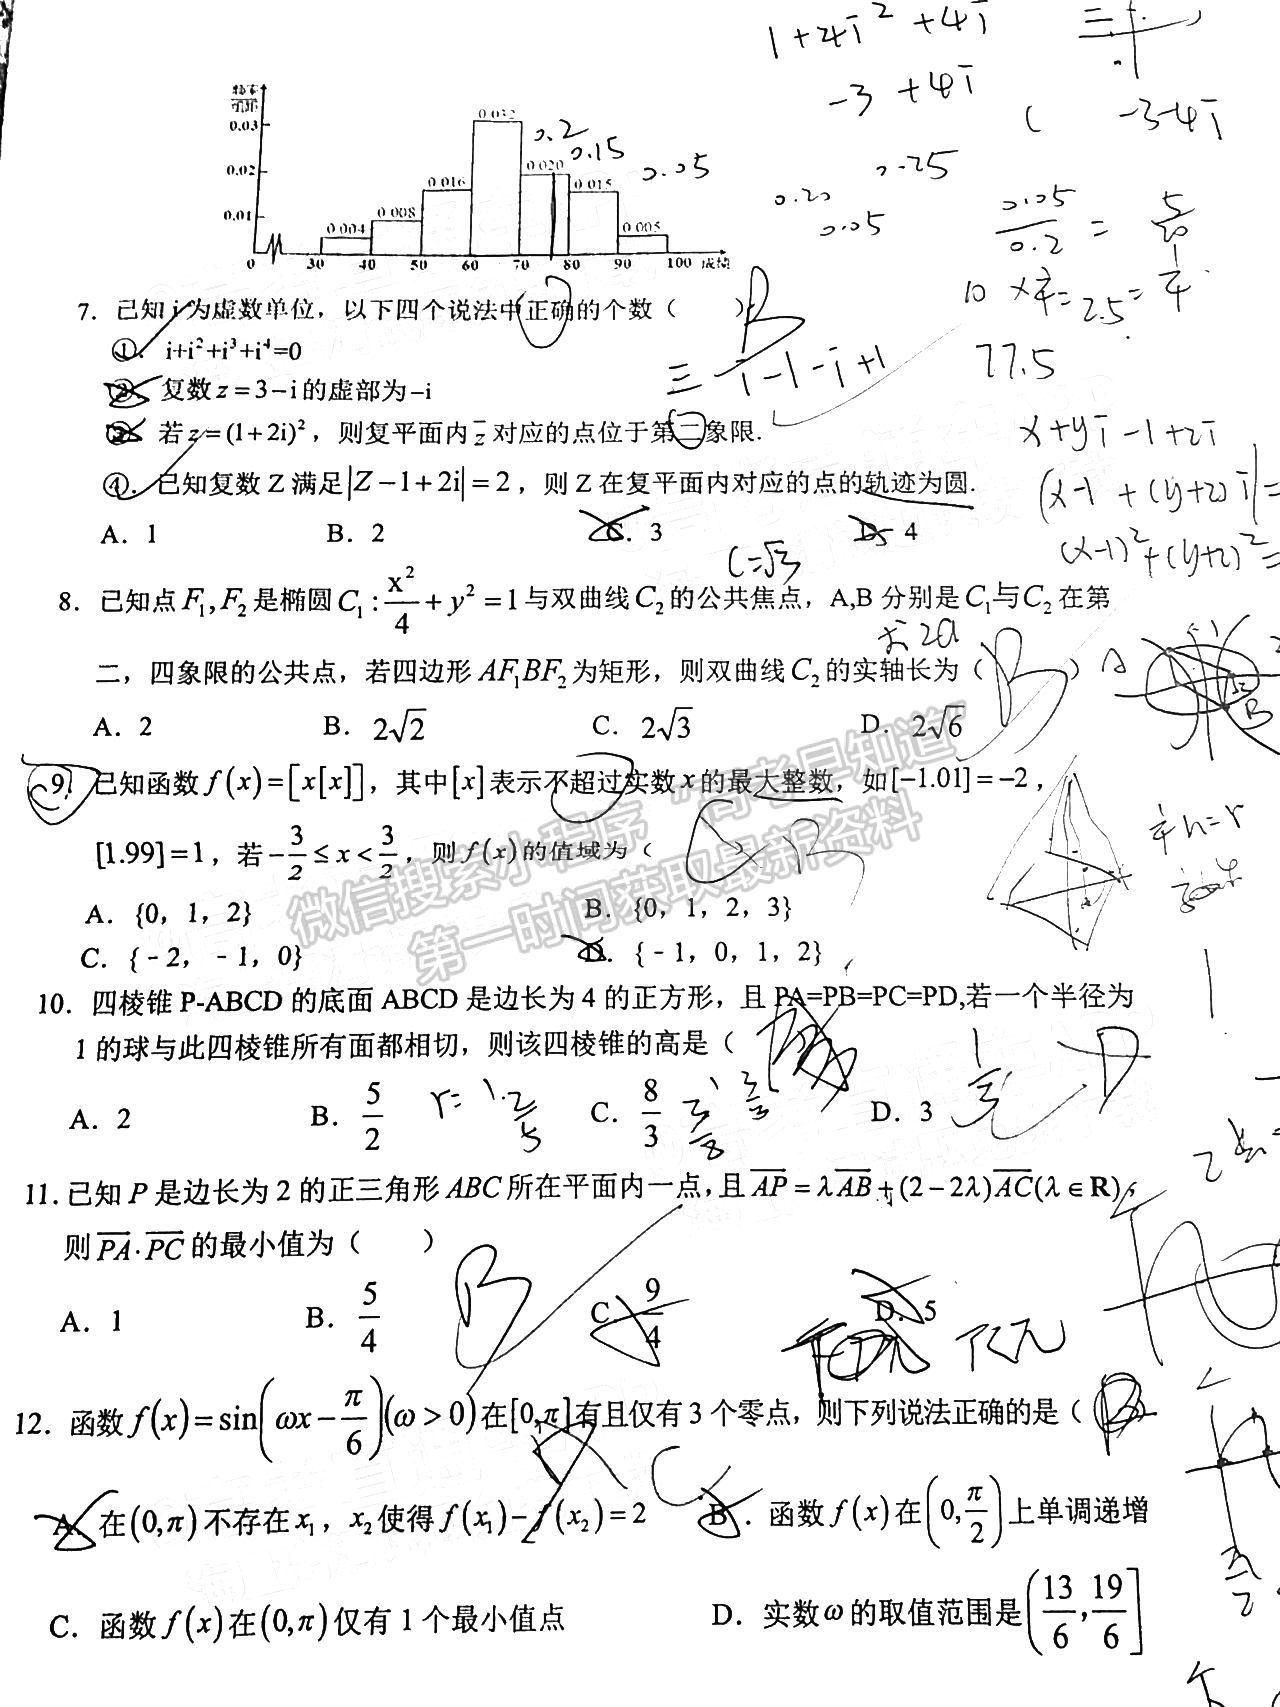 1+4i²+4i
-3+4i
-3-4i
频率
组距
0.03
0.02
0.01
0.004
0.008
0.016
0.032
0.020
0.015
0.005
0 30 40 50 60 70 80 90 100 成绩
0.2
0.15
0.05
0.25
0.20
0.05
0.05/0.2 =
10 × 1/4 = 2.5 =
77.5
7. 已知 i 为虚数单位，以下四个说法中正确的个数（ ）
①. i+i²+i³+i⁴=0
②. 复数 z=3-i 的虚部为-i
③. 若 z=(1+2i)²，则复平面内 z̄ 对应的点位于第二象限.
④. 已知复数 Z 满足|Z-1+2i|=2，则 Z 在复平面内对应的点的轨迹为圆.
A. 1 B. 2 C. 3 D. 4
B
i-1-i+1
x+yi-1+2i
|x-1+(y+2)i|=
(x-1)²+(y+2)²=
c=√3
8. 已知点 F₁,F₂ 是椭圆 C₁: x²/4 + y² = 1 与双曲线 C₂ 的公共焦点，A,B 分别是 C₁与C₂ 在第
二，四象限的公共点，若四边形 AF₁BF₂ 为矩形，则双曲线 C₂ 的实轴长为（ ）
2a
B
A
B
A. 2 B. 2√2 C. 2√3 D. 2√6
9. 已知函数 f(x)=[x[x]]，其中[x]表示不超过实数 x 的最大整数，如[-1.01]=-2，
[1.99]=1，若 -3/2 ≤ x < 3/2，则 f(x) 的值域为（
A. {0，1，2} B. {0，1，2，3}
C. {-2，-1，0} D. {-1，0，1，2}
微信搜索小程序“高考早知道”
第一时间获取最新资料
10. 四棱锥 P-ABCD 的底面 ABCD 是边长为 4 的正方形，且 PA=PB=PC=PD,若一个半径为
1 的球与此四棱锥所有面都相切，则该四棱锥的高是（
A. 2 B. 5/2 C. 8/3 D. 3
D
11. 已知 P 是边长为 2 的正三角形 ABC 所在平面内一点,且 AP = λAB + (2-2λ)AC(λ∈R)，
则 PA·PC 的最小值为（ ）
A. 1 B. 5/4 C. 9/4 D. 5
B
12. 函数 f(x)=sin(ωx-π/6)(ω>0)在[0,π]有且仅有 3 个零点，则下列说法正确的是（
A. 在(0,π)不存在 x₁，x₂使得 f(x₁)-f(x₂)=2 B. 函数 f(x)在(0,π/2)上单调递增
C. 函数 f(x)在(0,π)仅有 1 个最小值点 D. 实数 ω 的取值范围是(13/6,19/6]